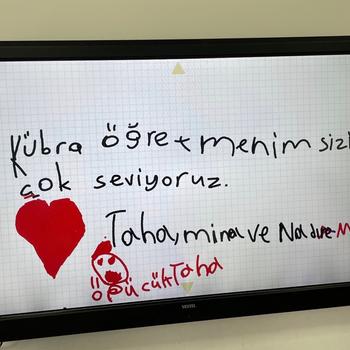 Kübra öğretmenim sizi
çok seviyoruz.
Taha, mina ve Nadire-M
öpücük Taha
VESTEL